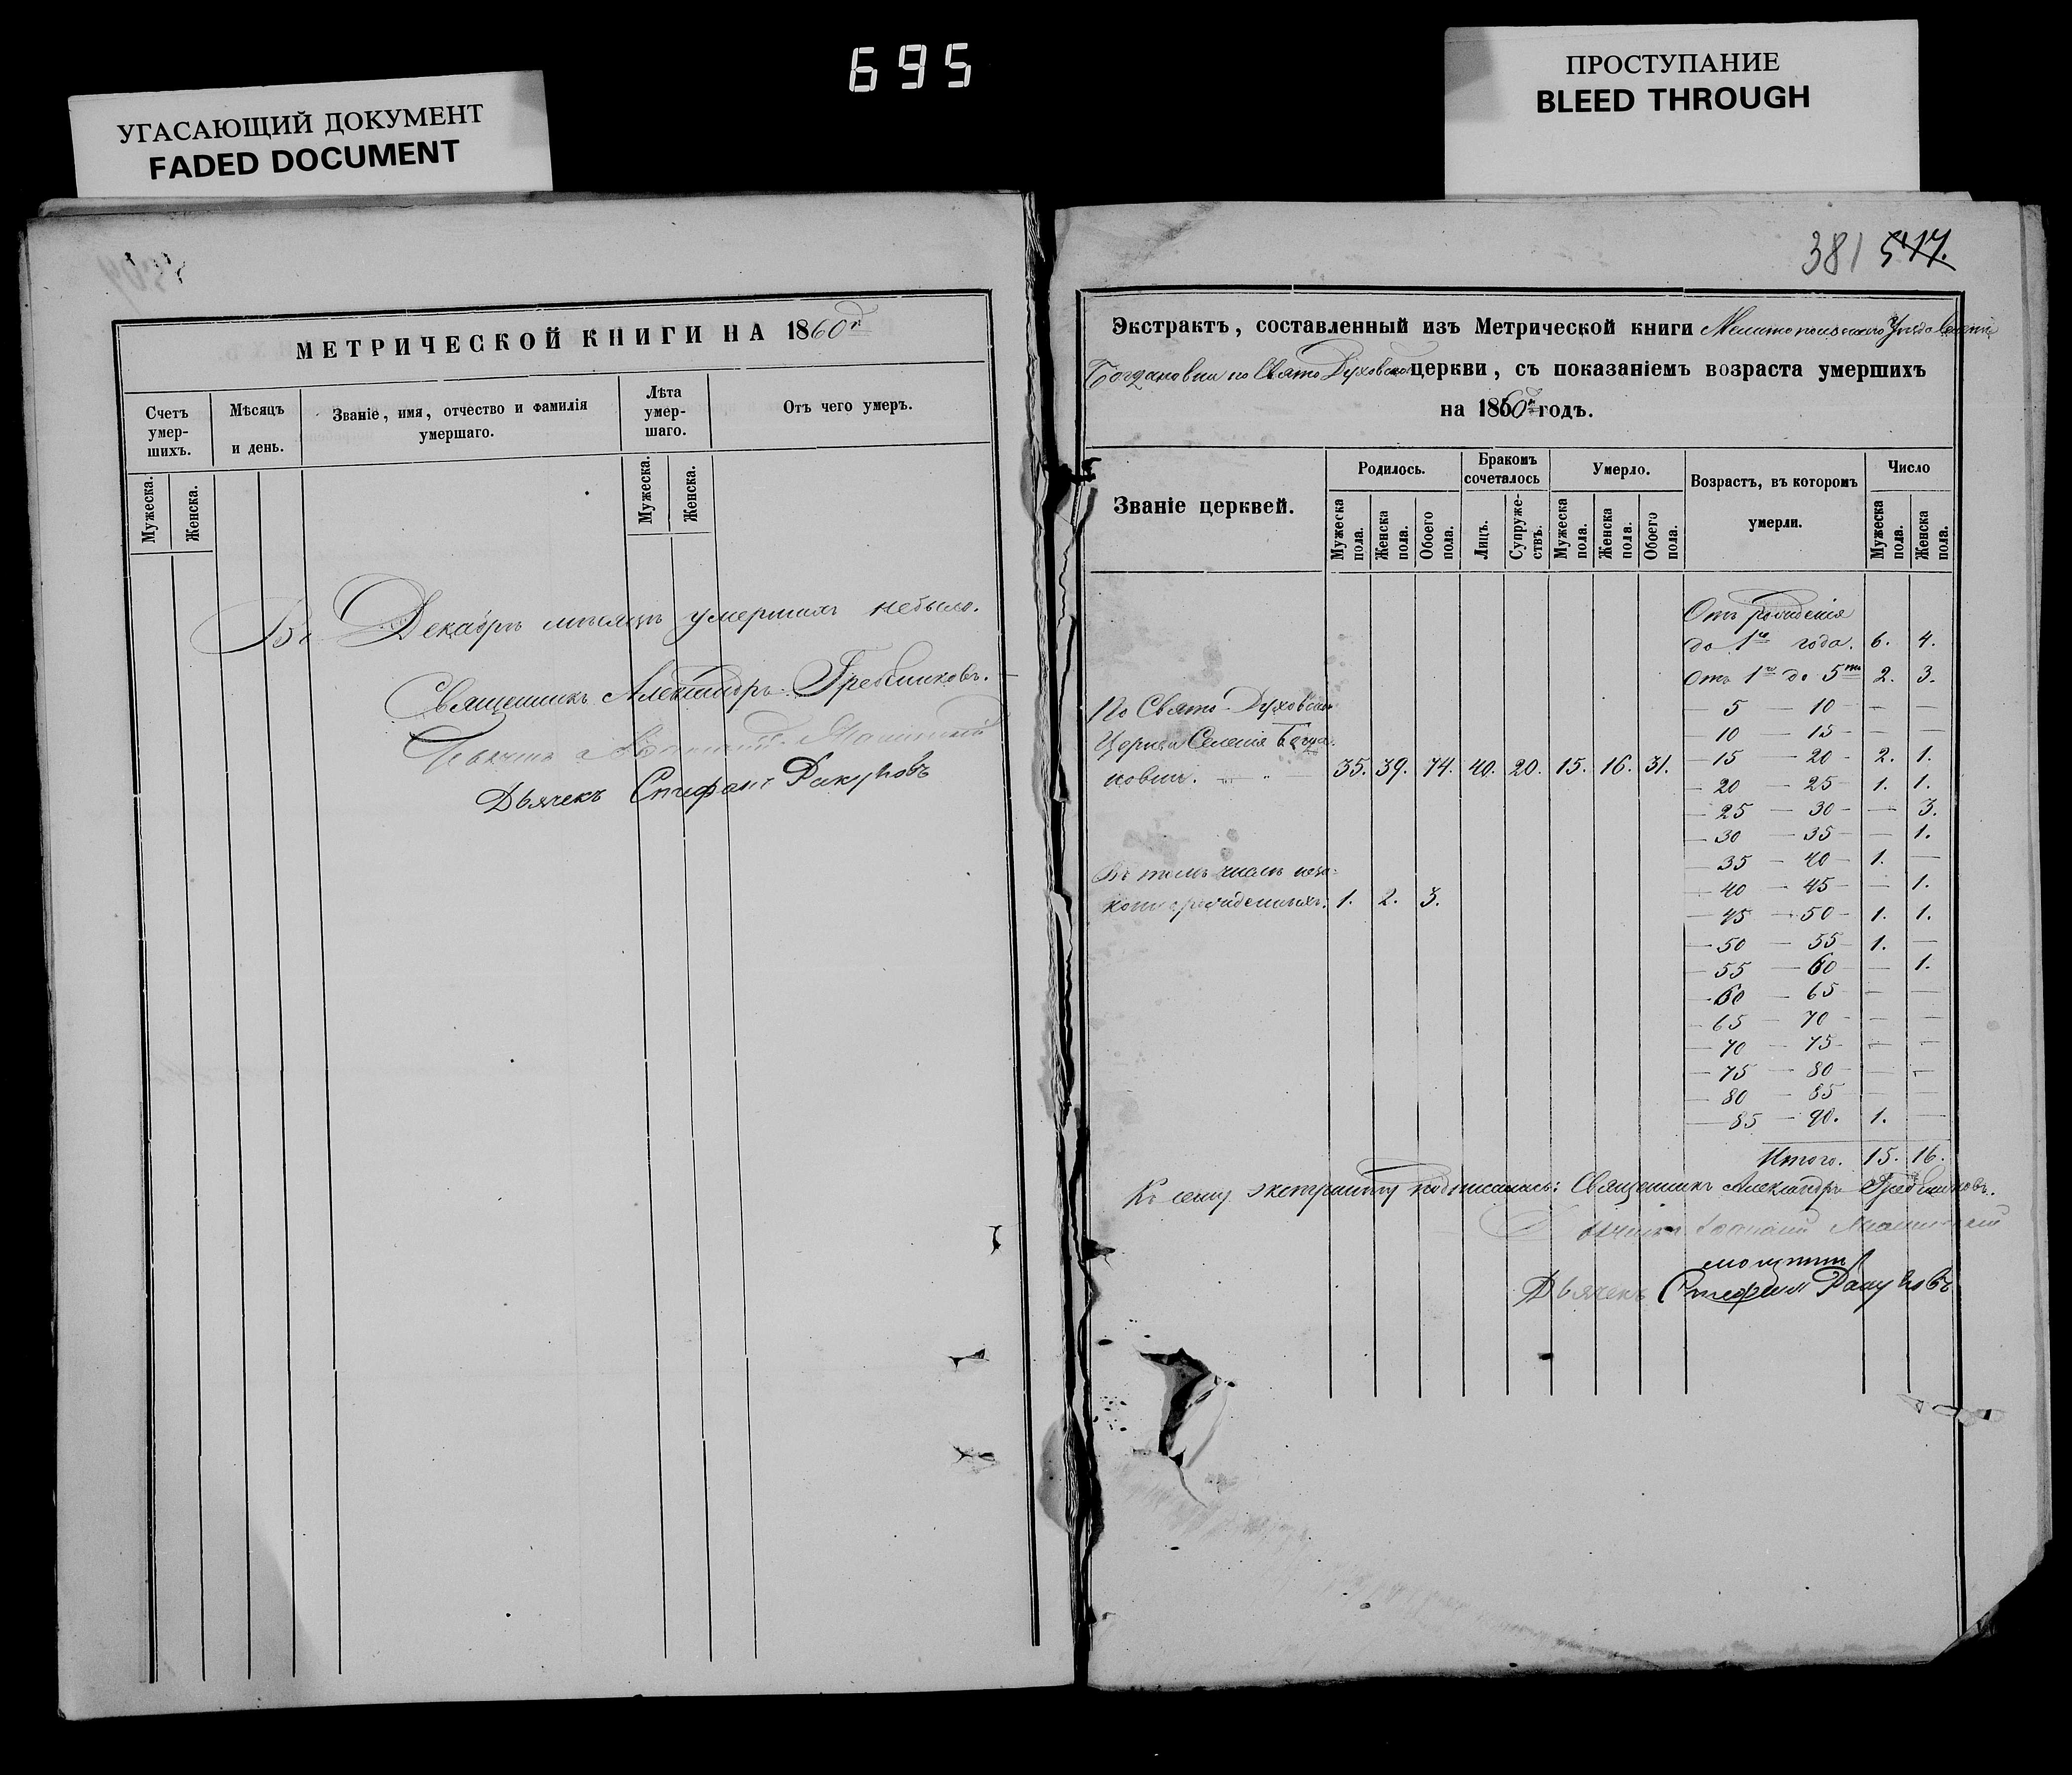 695
УГАСАЮЩИЙ ДОКУМЕНТ
FADED DOCUMENT
ПРОСТУПАНИЕ
BLEED THROUGH
МЕТРИЧЕСКОЙ КНИГИ НА 1860 г
Счетъ умер-шихъ.
Мѣсяцъ и день.
Званіе, имя, отчество и фамилія умершаго.
Лѣта умер-шаго.
Отъ чего умеръ.
Мужеска.
Женска.
Мужеска.
Женска.
Въ Декабрѣ мѣсяцѣ умершихъ небыло.
Священникъ Александръ Гребенниковъ.
Дьячекъ
381 517.
Экстрактъ, составленный изъ Метрической книги Мелитопольскаго Уѣзда Селенія
Богдановки по Свято Духовской церкви, съ показаніемъ возраста умершихъ
на 1860 годъ.
Званіе церквей.
Родилось.
Бракомъ сочеталось
Умерло.
Возрастъ, въ которомъ умерли.
Число
Мужеска пола.
Женска пола.
Обоего пола.
Лицъ.
Супруже-ствъ.
Мужеска пола.
Женска пола.
Обоего пола.
Мужеска пола.
Женска пола.
Отъ рожденія
до 1го года. 6. 4.
Отъ 1го до 5ти 2. 3.
По Свято-Духовской
— 5 — 10 — — —
Церкви Селенія Богда-
— 10 — 15 — — —
новки. 35. 39. 74. 40. 20. 15. 16. 31.
— 15 — 20 — 2. 1.
— 20 — 25 — 1. 1.
— 25 — 30 — — 3.
— 30 — 35 — — 1.
— 35 — 40 — 1. —
Въ томъ числѣ неза-
— 40 — 45 — — 1.
коннорожденныхъ. 1. 2. 3.
— 45 — 50 — 1. 1.
— 50 — 55 — 1. —
— 55 — 60 — — 1.
— 60 — 65 — — —
— 65 — 70 — — —
— 70 — 75 — — —
— 75 — 80 — — —
— 80 — 85 — — —
— 85 — 90. 1. —
Итого. 15. 16.
Къ сему экстракту подписались: Священникъ Александръ Гребенниковъ.
Дьячекъ